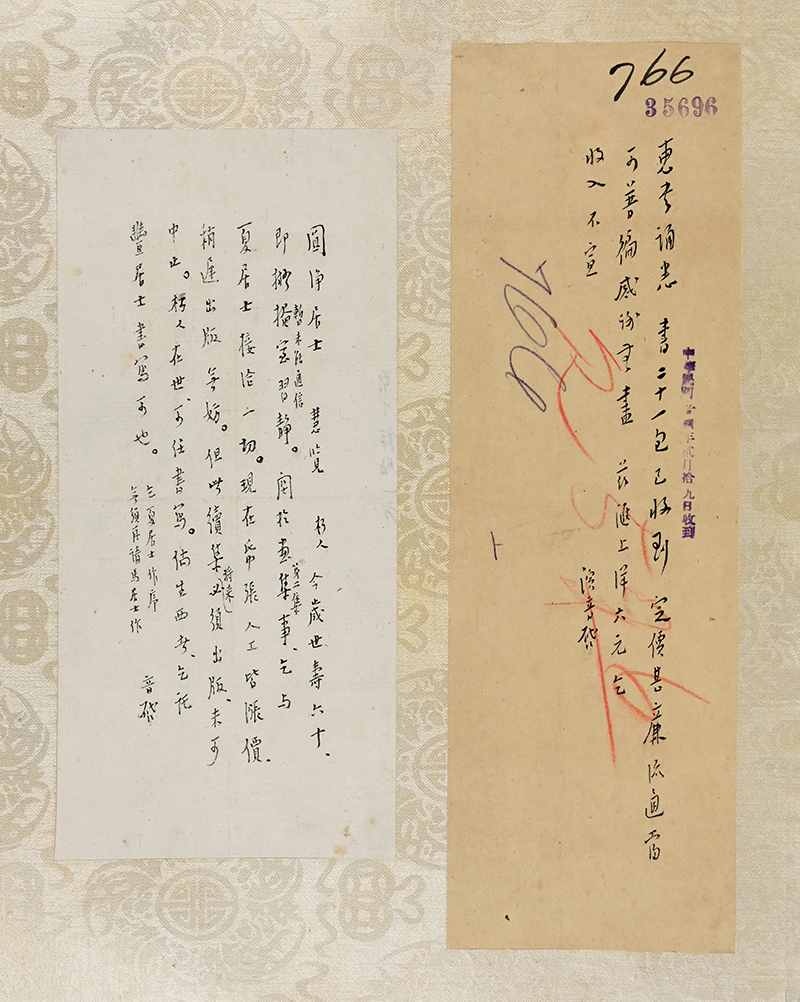 766
35696
惠書誦悉 書二十一包已收到 定價甚廉流通當
可普徧感謝無盡 茲滙上洋六元乞
收入不宣
演音啓
中華民國廿四年貳月拾九日收到
766
圓淨居士 慧覽 朽人今歲世壽六十、
即擬掩室習靜。關於畫集事、乞與
暫未能通信
第二集
夏居士接洽一切。現在紙張人工皆漲價、
稍遲出版無妨。但此續集必須出版、未可
將來
中止。朽人在世、可任書寫。倘生西者、乞託
豐居士書寫可也。
乞夏居士作序
無須再請馬居士作
音啓